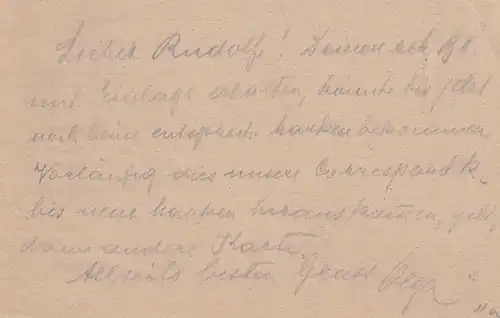 Lieber Rudolf! Deinen
und Einlage erhalten, konnte bis jetzt
noch keine entsprech. Marken bekommen
Vorläufig dies unsere Correspond K.
bis neue Marken herauskommen,
dann andere Karte.
Allseits besten Gruss Olga